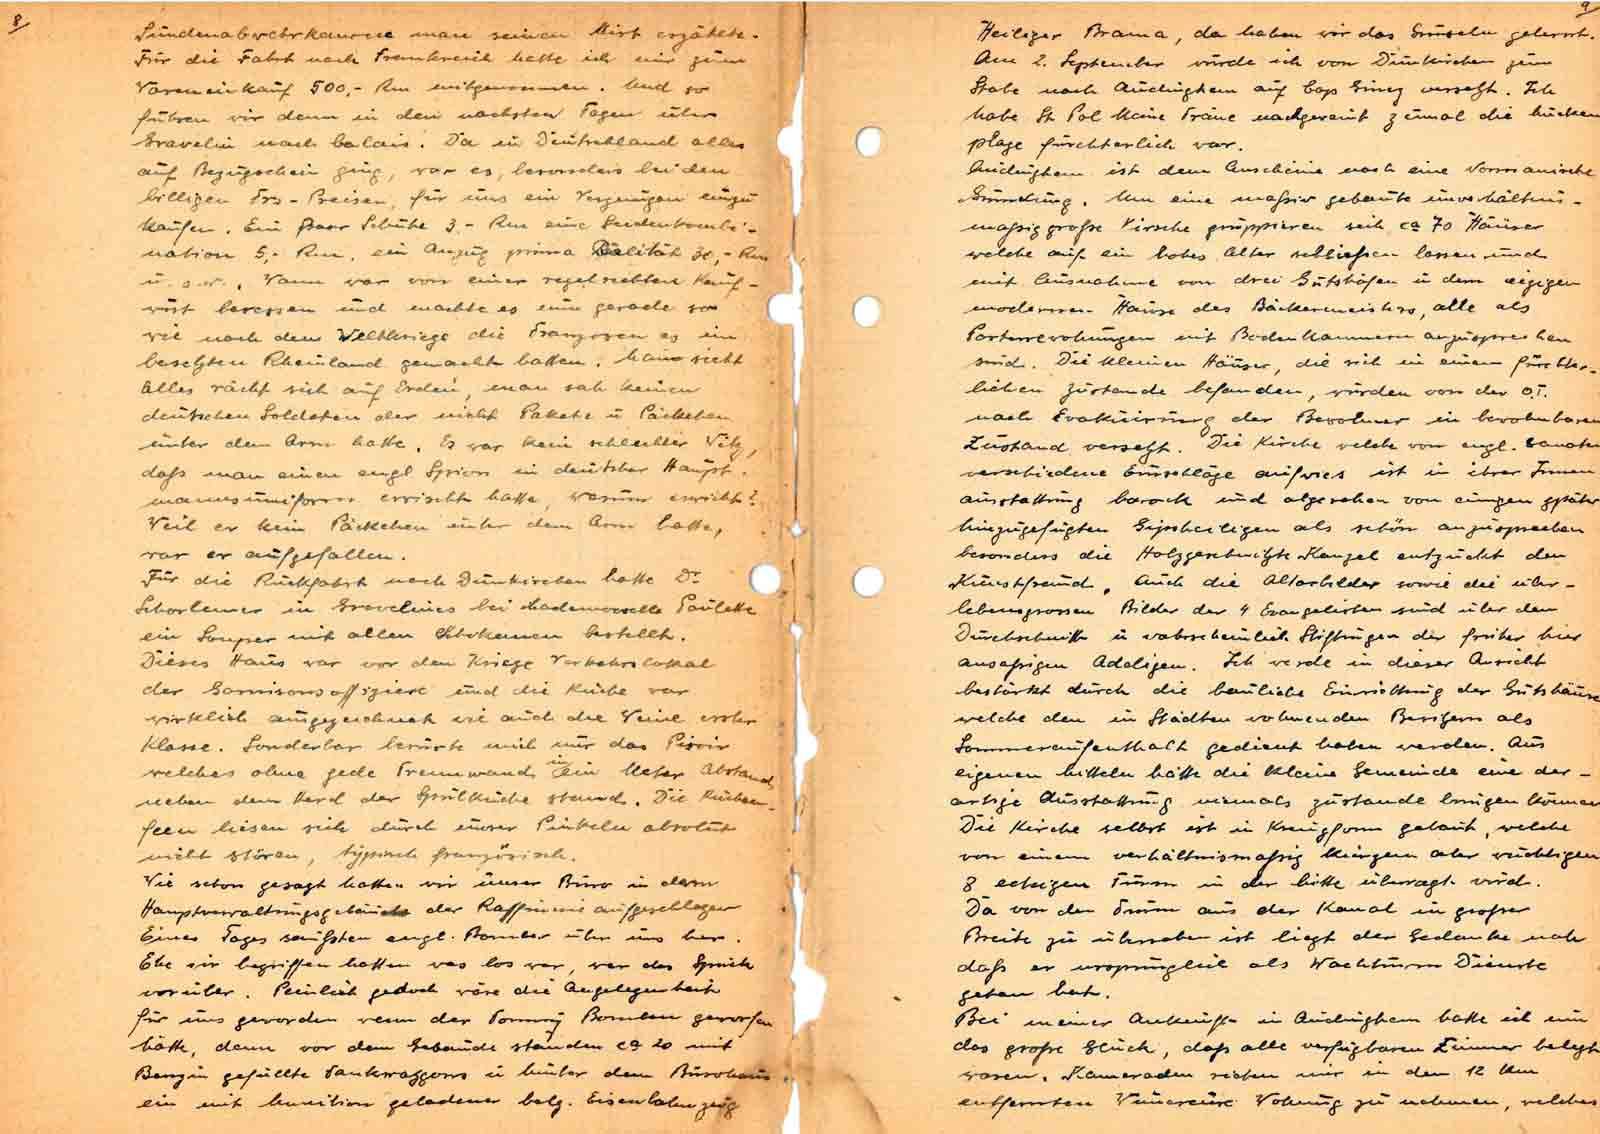 8/
Sündenabwehrkanone man seinen Mist erzählte.
Für die Fahrt nach Frankreich hatte ich mir zum
Wareneinkauf 500,- Rm mitgenommen. Und so
führen wir denn in den nächsten Tagen über
Gravelin nach Calais. Da in Deutschland alles
auf Bezugschein ging, war es, besonders bei den
billigen Frs-Preisen, für uns ein Vergnügen einzu
kaufen. Ein Paar Schuhe 3,- Rm eine Seidenkombi-
nation 5,- Rm, ein Anzug prima Qalität 30,- Rm
u.s.w., Mann war von einer regelrechten Kauf-
wut besessen und machte es nun gerade so
wie nach dem Weltkriege die Franzosen es im
besetzten Rheinland gemacht hatten. 
Alles rächt sich auf Erden, man sah keinen
deutschen Soldaten der nicht Pakete u Päckchen
unter dem Arm hatte. Es war kein schlechter Witz,
daß man einen engl Spion in deutscher Haupt-
mannsuniform erwischt hatte, warum erwischt?
Weil er kein Päckchen unter dem Arm hatte,
war er aufgefallen.
Für die Rückfahrt nach Dünkirchen hatte Dr.
Schorlemer in Gravelines bei Mademoiselle Paulette
ein Souper mit allen Schikanen bestellt.
Dieses Haus war vor dem Kriege Verkehrslokal
der Garnisonsoffiziere und die Küche war
wirklich ausgezeichnet wie auch die Weine erster
Klasse. Sonderbar berürte mich nur das Pissoir
welches ohne jede Trennwand in ein Meter Abstand
neben dem Herd der Spülküche stand. Die Küchen-
feen liesen sich durch unser Pinkeln absolut
nicht stören, typisch französisch.
Wie schon gesagt hatten wir unser Büro in dem
Hauptverwaltungsgebäude der Raffinerie aufgeschlagen
Eines Tages sausten engl. Bomber über uns her.
Ehe wir begriffen hatten was los war, war der Spuk
vorüber. Peinlich jedoch wäre die Angelegenheit
für uns geworden wenn der Tommy Bomben geworfen
hätte, denn vor dem Gebäude standen ca 20 mit
Benzin gefüllte Tankwaggons u hinter dem Bürohaus
ein mit Munition geladener belg. Eisenbahnzug
9/
Heiliger Brama, da haben wir das Gruseln gelernt.
Am 2. September würde ich von Dünkirchen zum
Stabe nach Audinghem auf Cap Grinez versetzt. Ich
habe St Pol keine Träne nachgeweint zumal die Mücken
plage fürchterlich war.
Audinghem ist dem Anscheine nach eine Normanische
Gründung. Um eine massiv gebaute unverhältnis-
mässig große Kirche gruppieren sich ca 70 Häuser
welche auf ein hohes Alter schließen lassen und
mit Ausnahme von drei Gutshöfen u dem einzigen
modernen Hause des Bäckermeisters, alle als
Parterrewohnungen mit Bodenkammern anzusprechen
sind. Die kleinen Häuser, die sich in einem fürchter-
lichen Zustande befanden, würden von der O.T.
nach Evakuirung der Bewohner in bewohnbaren
Zustand versetzt. Die Kirche welche von engl. Granaten
verschiedene Einschläge aufwies ist in ihrer Innen
ausstattung barock und abgesehen von einigen später
hinzugefügten Gipsheiligen als schön anzusprechen
besonders die Holzgeschnitzte Kanzel entzückt den
Kunstfreund. Auch die Altarbilder sowie die über-
lebensgrossen Bilder der 4 Evangelisten sind über dem
Durchschnitt u wahrscheinlich Stiftungen der früher hier
ansässigen Adeligen. Ich werde in dieser Ansicht
bestärkt durch die bauliche Einrichtung der Gutshäuser
welche den in Städten wohnenden Besitzern als
Sommeraufenthalt gedient haben werden. Aus
eigenen Mitteln hätte die kleine Gemeinde eine der-
artige Ausstattung niemals zustande bringen können
Die Kirche selbst ist in Kreuzform gebaut, welche
von einem verhältnismässig kurzen aber wuchtigen
8 eckigen Turm in der Mitte überragt wird.
Da von dem Turm aus der Kanal in großer
Breite zu übersehen ist liegt der Gedanke nah
daß er ursprünglich als Wachturm Dienste
getan hat.
Bei meiner Ankunft in Audinghem hatte ich nun
das große Glück, daß alle verfügbaren Zimmer belegt
waren. Kameraden rieten mir in dem 12 Km
entfernten Wimereux Wohnung zu nehmen, welches